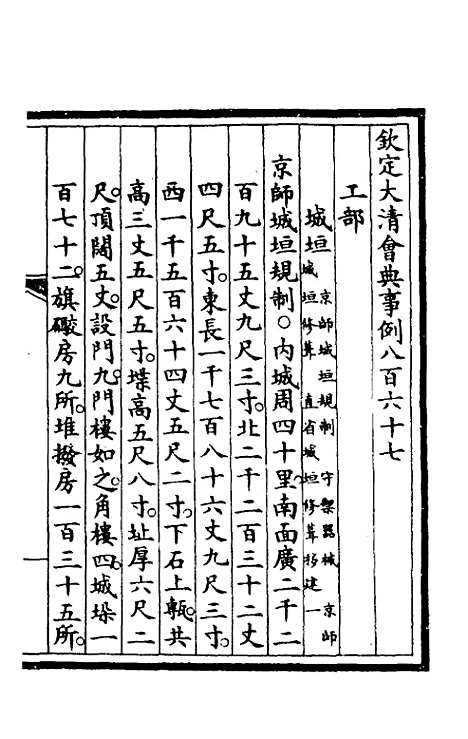 欽定大清會典事例八百六十七
工部
城垣 京師城垣規制 守禦器械 京師
城垣修葺 直省城垣修葺移建一
京師城垣規制○內城周四十里南面廣二千二
百九十五丈九尺三寸。北二千二百三十二丈
四尺五寸。東長一千七百八十六丈九尺三寸。
西一千五百六十四丈五尺二寸。下石上甎。共
高三丈五尺五寸。堞高五尺八寸。址厚六尺二
尺。頂闊五丈。設門九。門樓如之。角樓四。城垛一
百七十二。旗礮房九所。堆撥房一百三十五所。